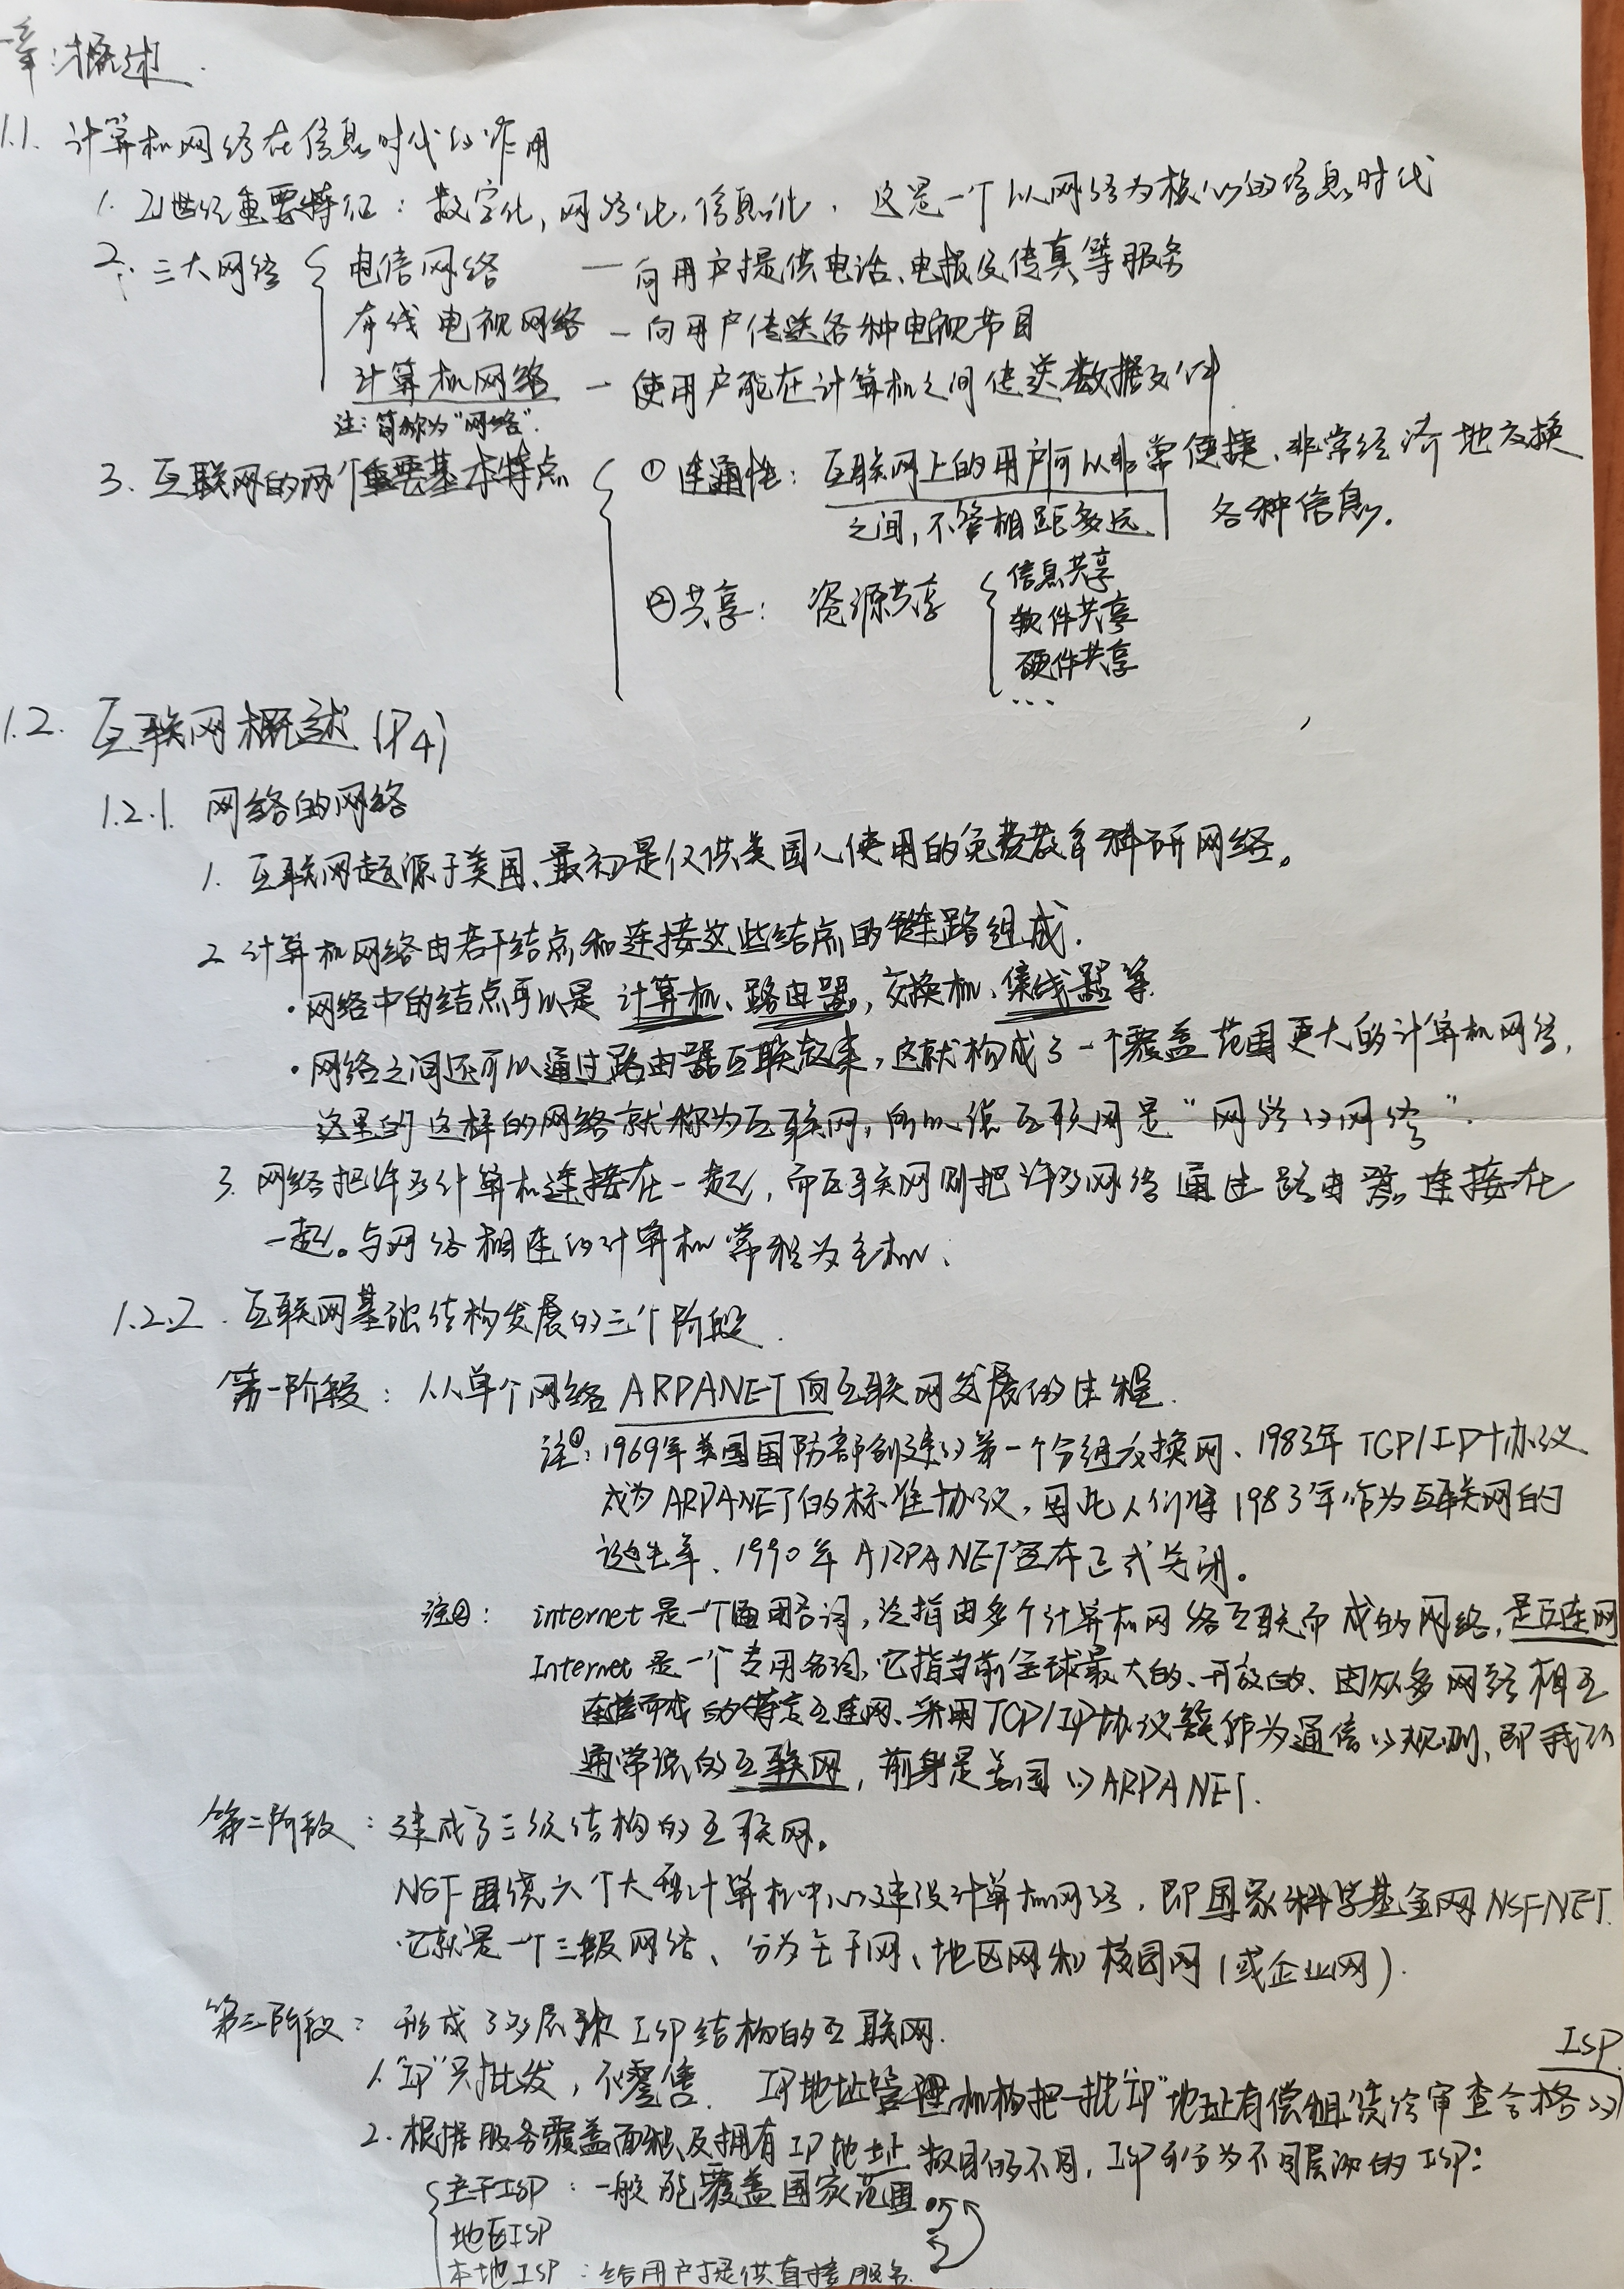 一章:概述.
1.1. 计算机网络在信息时代的作用
1. 21世纪重要特征: 数字化,网络化,信息化. 这是一个以网络为核心的信息时代
2. 三大网络 { 电信网络 — 向用户提供电话、电报及传真等服务
有线电视网络 — 向用户传送各种电视节目
计算机网络 — 使用户能在计算机之间传送数据文件
注:简称为"网络".
3. 互联网的两个重要基本特点 { ①连通性: 互联网上的用户可以非常便捷、非常经济地交换
之间,不管相距多远 各种信息.
②共享: 资源共享 { 信息共享
软件共享
硬件共享
...
1.2. 互联网概述(P4)
1.2.1. 网络的网络
1. 互联网起源于美国、最初是仅供美国人使用的免费教育科研网络。
2. 计算机网络由若干结点和连接这些结点的链路组成.
·网络中的结点可以是计算机、路由器,交换机、集线器等
·网络之间还可以通过路由器互联起来,这就构成了一个覆盖范围更大的计算机网络,
这里的这样的网络就称为互联网,所以说互联网是"网络的网络".
3. 网络把许多计算机连接在一起,而互联网则把许多网络通过路由器连接在
一起。与网络相连的计算机常称为主机、
1.2.2. 互联网基础结构发展的三个阶段.
第一阶段: 从单个网络ARPANET向互联网发展的过程.
注①: 1969年美国国防部创建的第一个分组交换网、1983年TCP/IP协议
成为ARPANET的标准协议,因此人们将1983年作为互联网的
诞生年、1990年ARPANET宣布正式关闭。
注②: internet是一个通用名词,泛指由多个计算机网络互联而成的网络,是互连网
Internet是一个专用名词、它指当前全球最大的、开放的、由众多网络相互
连接而成的特定互连网、采用TCP/IP协议簇作为通信的规则,即我们
通常说的互联网,前身是美国的ARPANET.
第二阶段: 建成了三级结构的互联网。
NSF围绕六个大型计算机中心建设计算机网络,即国家科学基金网NSFNET.
它就是一个三级网络、分为主干网、地区网和校园网(或企业网).
第三阶段: 形成了多层次ISP结构的互联网.
ISP
1."IP"只批发,不零售. IP地址管理机构把一批"IP"地址有偿租赁给审查合格的
2.根据服务覆盖面积及拥有IP地址数目的不同,ISP可分为不同层次的ISP:
{ 主干ISP: 一般能覆盖国家范围
地区ISP
本地ISP: 给用户提供直接服务.